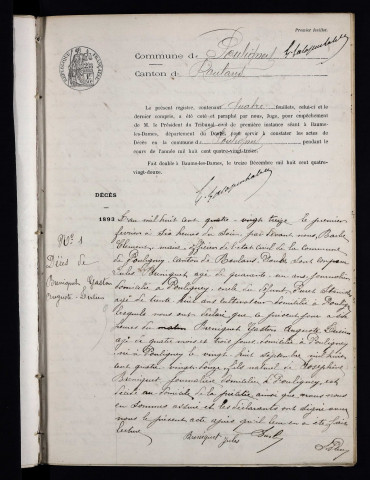 Premier feuillet.
Commune de Pouligney
Canton de Roulans
Le présent registre, contenant quatre feuillets, celui-ci et le
dernier compris, a été coté et paraphé par nous, Juge, pour empêchement
de M. le Président du Tribunal civil de première instance séant à Baume-
les-Dames, département du Doubs, pour servir à constater les actes de
Décès en la commune de Pouligney pendant le
cours de l'année mil huit cent quatre-vingt-treize.
Fait double à Baume-les-Dames, le treize Décembre mil huit cent quatre-
vingt-douze.
DÉCÈS
1893
N° 1
Décès de
Buniquet Gaston
L'an mil huit cent quatre-vingt treize le premier
février à six heures du soir, par devant nous, Barbe
Clément, maire, officier de l'état civil de la commune
de Pouligney, Canton de Roulans, Doubs, sont comparus
Jules Buniquet, âgé de quarante un ans,
domicilié à Pouligney, oncle du défunt,
âgé de trente huit ans cultivateur domicilié à Pouligney
lesquels nous ont déclaré que ce présent jour à six
heures du matin Buniquet Gaston Auguste
âgé de quatre mois et trois jours, domicilié à Pouligney
né à Pouligney le vingt huit septembre mil huit
cent quatre vingt douze, fils naturel de Joséphine
Buniquet, journalière, domiciliée à Pouligney, est
décédé au domicile de la ainsi que nous nous
en sommes assuré et les déclarants ont signé avec
nous le présent acte après qu'il leur en a été fait
lecture
Buniquet Jules